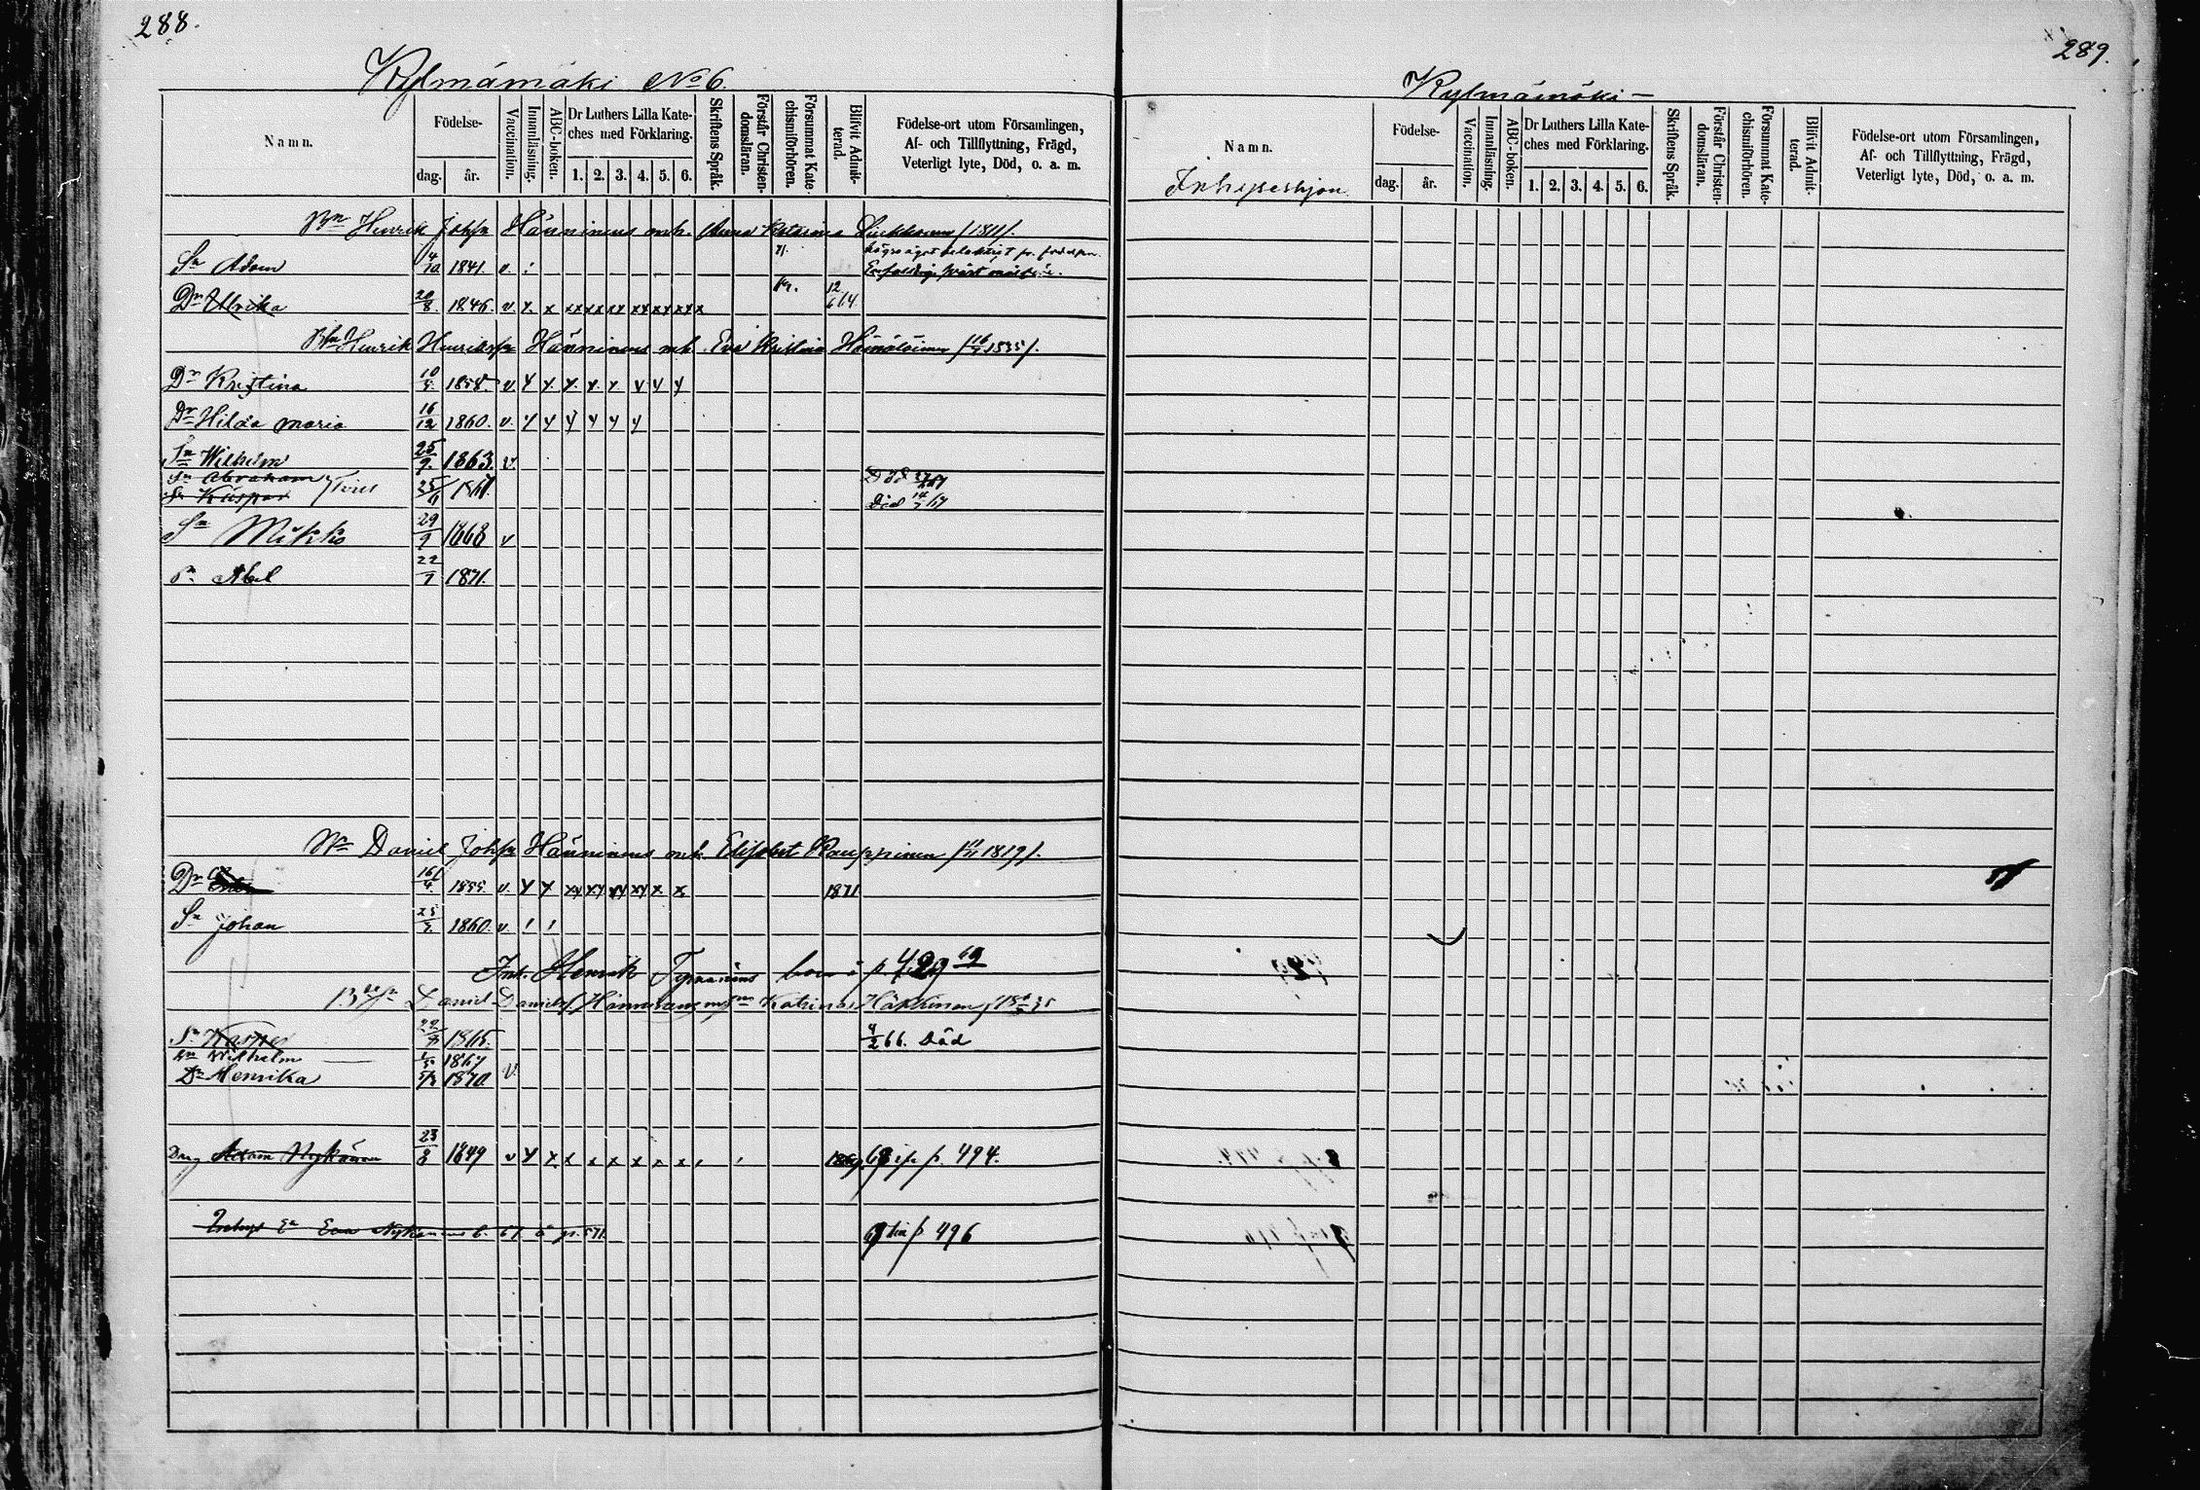 288.
Kylmämäki No 6.
Namn.
Födelse-
dag.
år.
Vaccination.
Innanläsning.
ABC-boken.
Dr Luthers Lilla Kate-
ches med Förklaring.
1. 2. 3. 4. 5. 6.
Skriftens Språk.
Förstår Christen-
domsläran.
Försummat Kate-
chismiförhören.
Blifvit Admit-
terad.
Födelse-ort utom Församlingen,
Af- och Tillflyttning, Frägd,
Veterligt lyte, Död, o. a. m.
Bn Henrik Johsn Hänninens enk. Anna Katarina /1811/.
Sn Adam 4/10 1841. v.
Dr Ulrika 20/8. 1845. v. x. x xx xx xx xx xx xx x 12/6 64.
Bn Henrik Henrikssn Hänninens enk. Eva Kristina Hämäläinen 1835/.
Dr Kristina 10/5. 1858 v. y y. y. y. y. y y y
Dr Hilda Maria 16/12 1860. v. y y y y y y
Sn Wilhelm 25/9. 1863 v.
Sn Abraham
Sn Kaspar Tvill 25/11 1867. Död
Död 67
Sn Mikko 29/9 1868 v
Sn Abel 22/7 1871.
Bn Daniel Johsn Hänninens enk. Elisabet Kauppinen 1819/.
Dr 16/4. 1855. v. y y xy xy xy xy x x 1871
Sn Johan 25/5. 1860. v. ! !
Inh. Henrik bor å p. 429 69
Daniel Danielss. Hänninens Katrina Häkkinen
Sn Kasper 22/8 1865. 4/2 66. Död
Sn Wilhelm 1867
Dr Henrika 5/3 1870 v.
Drg Adam Nykänen 23/8 1849 v y x x x x x x x 1869 68 p. 494.
Inhys En Eva Nykänens b. 61 å p. 571. 69 p 496
289.
Kylmämäki
Inhyseshjon
Namn.
Födelse-
dag.
år.
Vaccination.
Innanläsning.
ABC-boken.
Dr Luthers Lilla Kate-
ches med Förklaring.
1. 2. 3. 4. 5. 6.
Skriftens Språk.
Förstår Christen-
domsläran.
Försummat Kate-
chismiförhören.
Blifvit Admit-
terad.
Födelse-ort utom Församlingen,
Af- och Tillflyttning, Frägd,
Veterligt lyte, Död, o. a. m.